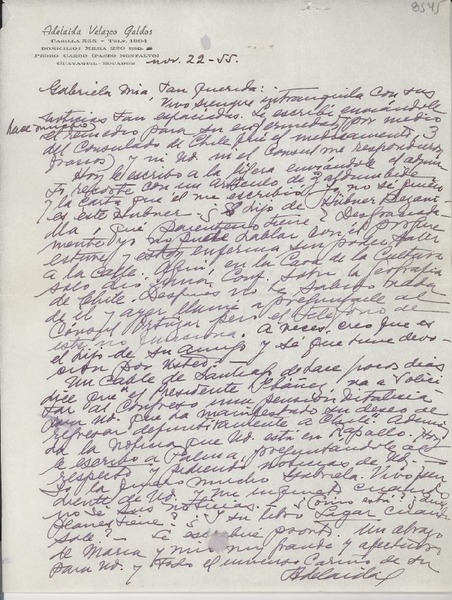 8545
Adelaida Velazco Galdos
CASILLA 555 - TELF. 1804
DOMICILIO: MERA 220 ESQ. a
PEDRO CARBO (PASEO MONTALVO)
GUAYAQUIL-ECUADOR
nov. 22-55.
Gabriela mía, tan querida:
Vivo siempre intranquila con sus
noticias tan espaciadas. Le escribí enviándole
hace mucho el remedio para su enfermedad (por medio
del Consulado de Chile fué el medicamento, 3
frascos) y ni Ud. ni el Consul me respondieron
Hoy le escribo a la ligera enviándole el adjun
to recorte con un artículo de Zaldumbide
y la carta que él me escribió. Y no sé quién
es este Hübner ¿El hijo de Hübner Bezani
lla? ¿Qué parentesco tiene? Desgraciada
mente yo no puedo hablar con él porque
estuve y estoy enferma sin poder salir
a la calle. Aquí, en la Casa de la Cultura
solo dió una Conf. sobre la geografía
de Chile. Después no he sabido nada
de él y ayer llamé a preguntarle al
Consul pero el teléfono de
éste no funciona. A veces creo que es
el hijo de su amigo y sé que tiene devo
ción por Usted.
Un Cable de Santiago de hace pocos días
dice que el Presidente Ibáñez, va a solici
tar al Congreso una pensión vitalicia
para Ud. que ha manifestado su deseo de
regresar definitivamente a Chile. Ademas
da la noticia que Ud. está en Rapallo. Hoy
le escribo a Palma, preguntándole al
respecto y pidiendo noticias de Ud.
Yo la quiero mucho Gabriela. Vivo pen
diente de Ud. Y me inquieto cuando
no sé sus noticias. ¿Cómo está? ¿Qué
planes tiene? ¿Y su libro Lagar cuando
sale? - Le escribiré pronto. Un abrazo
de María y mío muy grande y afectuoso
para Ud. y todo el inmenso Cariño de su
Adelaida